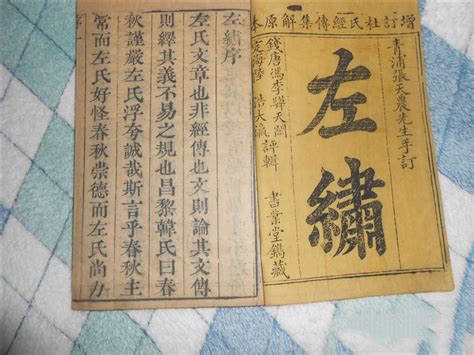 增訂杜氏經傳集解原本
青浦張天農先生手訂
左繡
錢唐馮李驊天閑
定海陸浩大瀛
評輯
書業堂鐫藏
左繡序
左氏文章也非經傳也文則論其文傳
則經其義不易之規也昌黎韓氏曰春
秋謹嚴左氏浮夸誠哉斯言乎春秋主
常而左氏好怪春秋崇德而左氏尚力